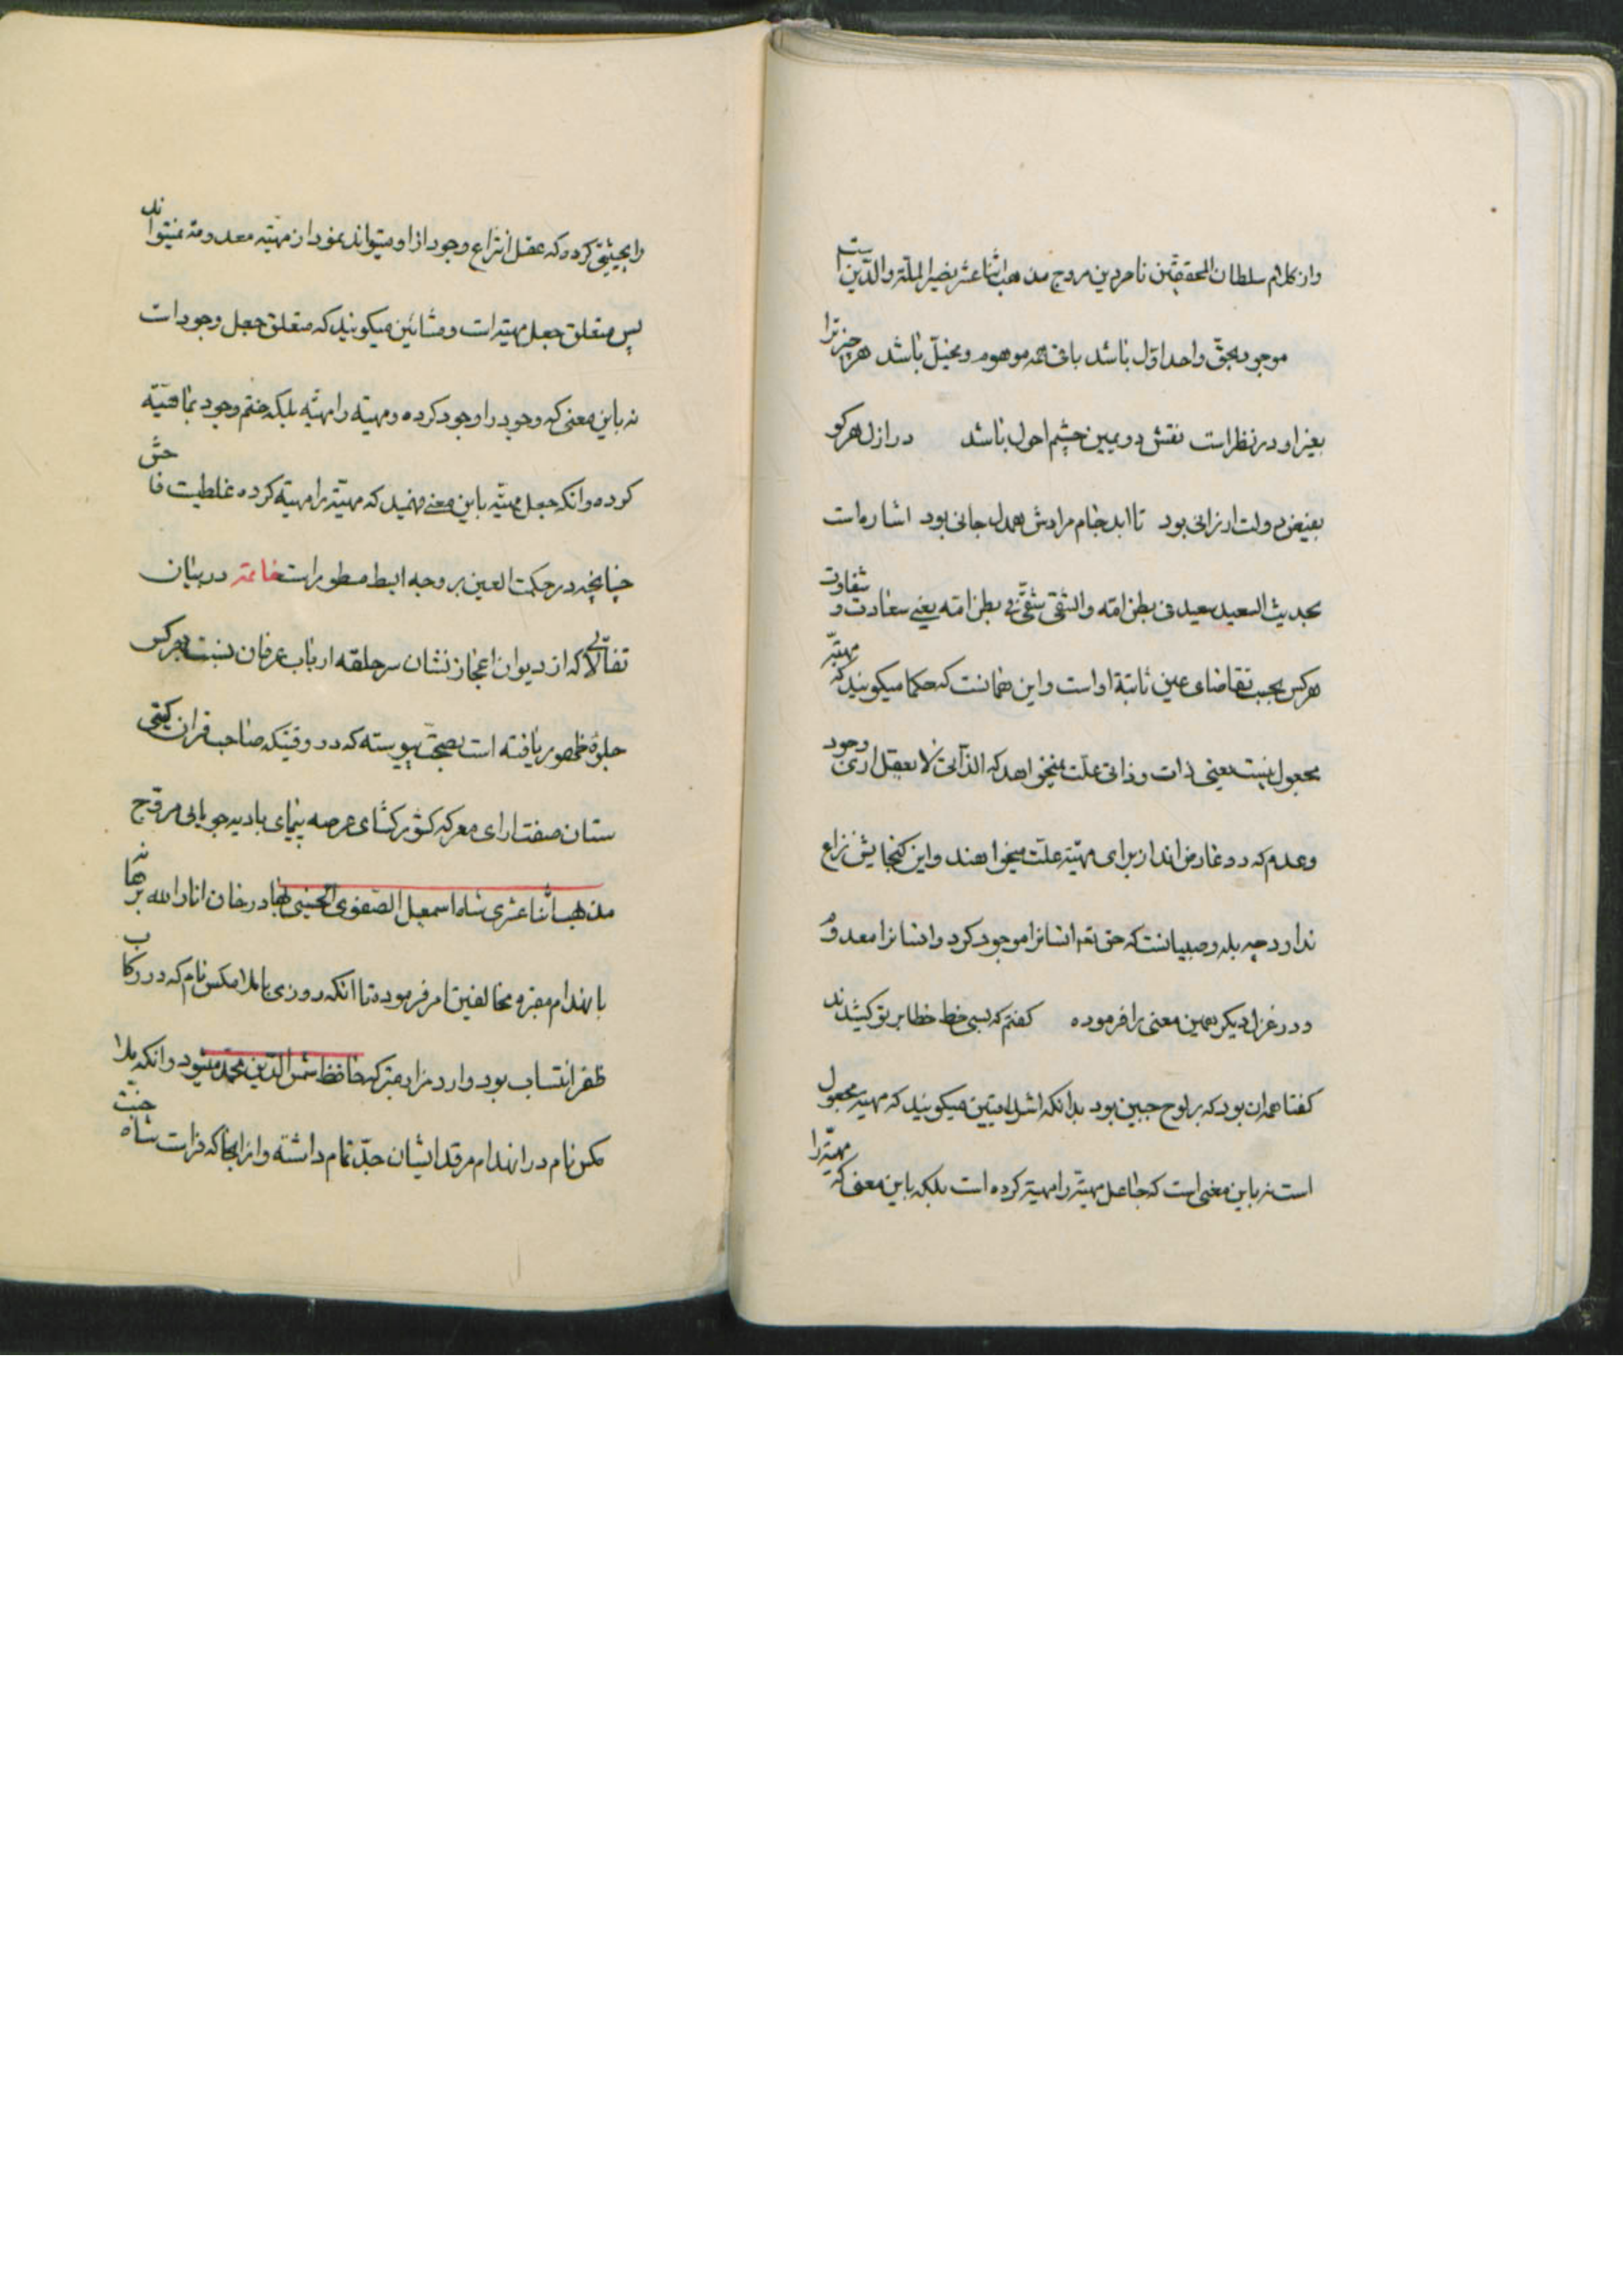 واز کلام سلطان المحققین ناصر دین مروج مذهب اثنا عشر نصیر الملة والدین است
موجود بحق واحد اول باشد باقی همه موهوم و مخیل باشد هر چیز ترا
بغیر او در نظر است نقش دویمین چشم احول باشد در ازل هر کو
بفیض دولت ارزانی بود تا ابد جام مرادش همدل جانی بود اشاره است
بحدیث السعید سعید فی بطن امه والشقی شقی فی بطن امه یعنی سعادت و شقاوت
هر کس بحسب تقاضای عین ثابتة او است و این همانست که حکما میکویند که مهیة
مجعول نیست یعنی ذات و ذاتی علت نمیخواهد که الذاتی لا یعقل اری وجود
و عدم که دو عارض اند از برای مهیة علت میخواهند و این کنجایش نزاع
ندارد چه بله و صبیانست که حق تعم انسانرا موجود کرد و انسانرا معدوم
و در غزل دیکر همین معنی را فرموده کفتم که بسی خط خطا بر تو کشیدند
کفتا همه ان بود که بر لوح جبین بود بدانکه اشراقیین میکویند که مهیة مجعول
است نه باین معنی است که جاعل مهیة را مهیة کرده است بلکه باین معنی که مهیة را
را بحیثیتی کرده که عقل انتزاع وجود از او میتواند نمود از مهیته معدومه نمیتواند
پس متعلق جعل مهیته است و مشائین میکویند که متعلق جعل وجود است
نه باین معنی که وجود را وجود کرده و مهیته را مهیته بلکه ضم وجود بماهیة
کرده و انکه جعل مهیته باین معنی فهمید که مهیته را مهیته کرده غلطیت فاحش
چنانچه در حکمت العین بر وجه ابسط مسطور است خاتمه در بیان
تفألاتی که از دیوان اعجاز نشان سر حلقه ارباب عرفان نسبت بهر کس
جلوۀ ظهور یافته است بصحت پیوسته که در وقتیکه صاحب قران کیتی
ستان صفت ارای معرکه کشور کشای عرصه پیمای بادیه جویایی مروج
مذهب اثنا عشری شاه اسمعیل الصفوی الحسینی بهادر خان انار الله برهانه
بانهدام مقبره مخالفین امر فرموده تا انکه روزی با ملا مکس نام که در رکاب
ظفر انتساب بود وارد مزار متبرکه حافظ شمس الدین محمد میشود و انکه ملا
مکس نام در انهدام مرقد ایشان جد تمام داشته و از انجا که فراست شاه جنت